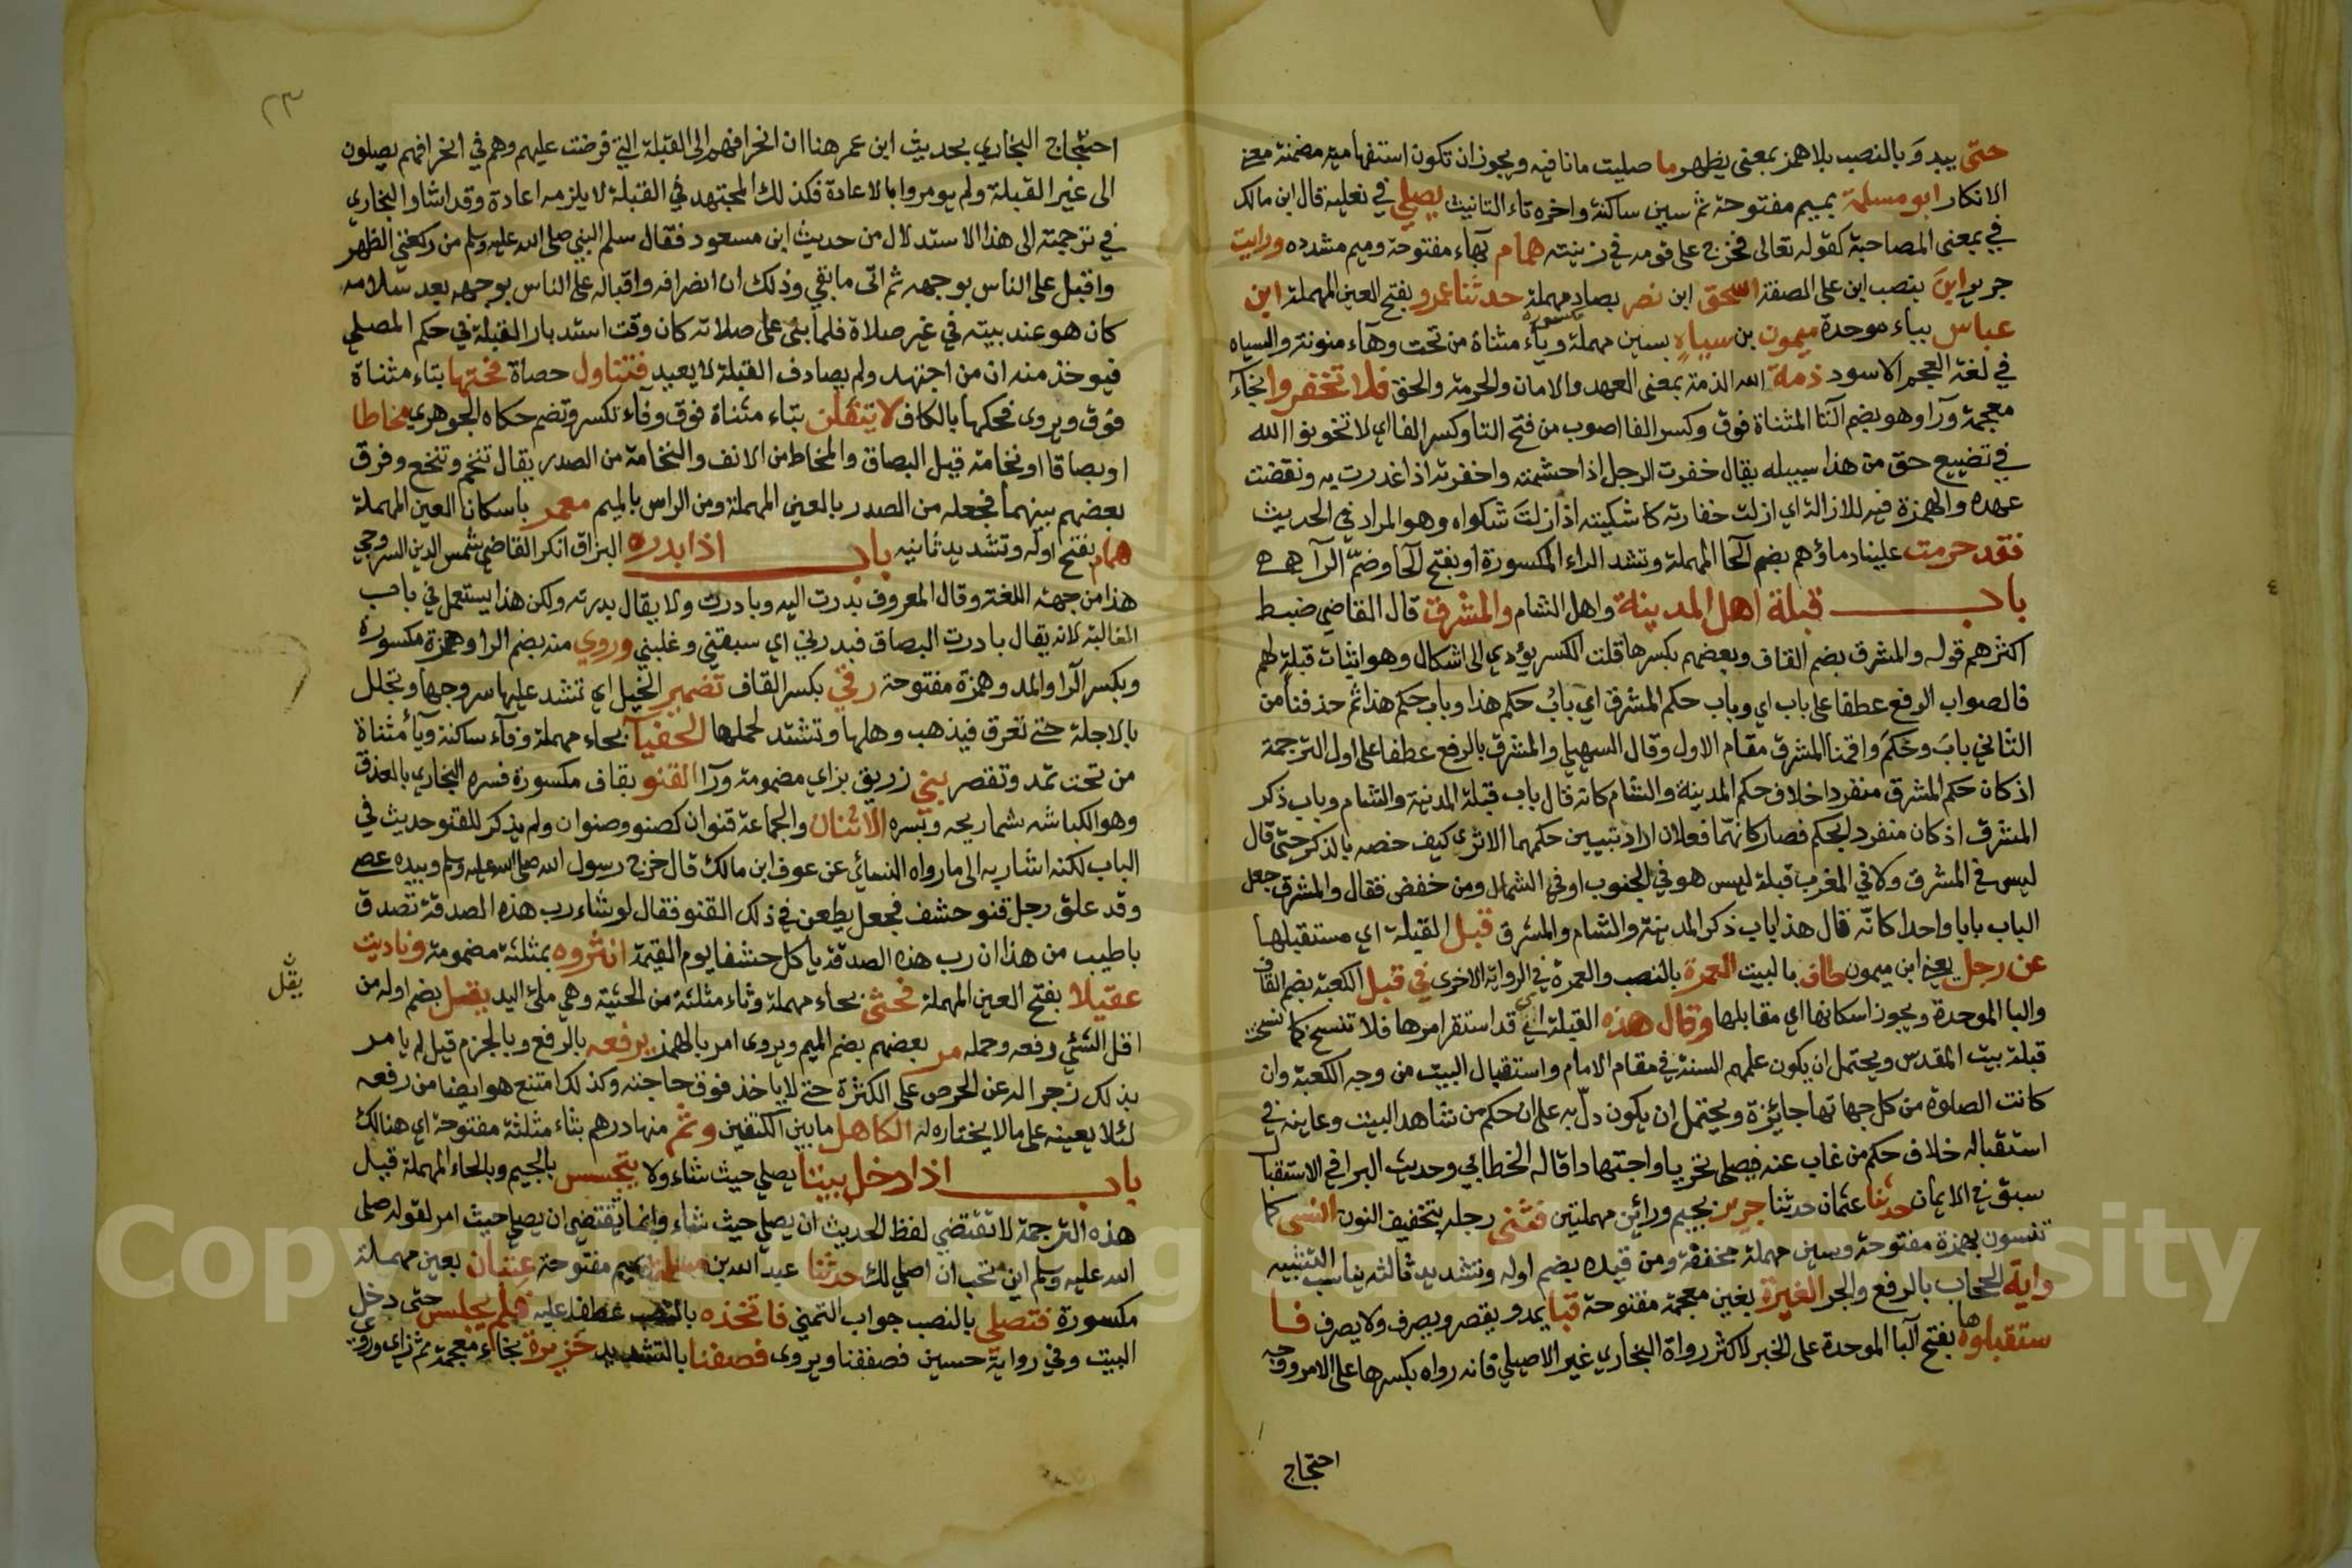 حتى يبدوَ بالنصب بلا همز بمعنى يظهر ما صليت ما نافيه ويجوز ان تكون استفهاميه مضمنة معنى
الانكار ابو مسلمة بميم مفتوحة ثم سين ساكنة واخره تاء التانيث يصلي في نعليه قال ابن مالك
في بمعنى المصاحبة كقوله تعالى فخرج على قومه في زينته همام بهاء مفتوحة وميم مشدده ورايت
جرير ابنَ بنصب ابن على الصفة اسحق ابن نصر بصاد مهملة حدثنا عمرو بفتح العين المهملة ابن
عباس بباء موحدة ميمون بن سياهٍ بسين مهملة مكسورة وياء مثناة من تحت وهآء منونة والسياه
في لغة العجم الاسود ذمة الله الذمة بمعنى العهد والامان والحرمة والحق فلا تخفروا بخآء
معجمة ورآ وهو بضم التا المثناة فوق وكسر الفا اصوب من فتح التا وكسر الفا اي لا تخونوا الله
في تضييع حق من هذا سبيله يقال خفرت الرجل اذا حشمته واخفرته اذا غدرت به ونقضت
عهده والهمزة فيه للازالة اي ازلت خفارته كاشكيته اذا ازلتَ شكواه وهو المراد في الحديث
فقد حرمت علينا دماؤهم بضم الحا المهملة وتشد الراء المكسورة او بفتح الحا وضمّ الرآ
باب قبلة اهل المدينة واهل الشام والمشرق قال القاضي ضبط
اكثرهم قوله والمشرق بضم القاف وبعضهم بكسرها قلت الكسر يؤدي الى اشكال وهو اثبات قبلة لهم
فالصواب الرفع عطفا على باب اي وباب حكم المشرق اي بابُ حكم هذا وباب حكم هذا ثم حذفنا من
الثاني بابَ وحكمَ واقمنا المشرق مقام الاول وقال السهيلي والمشرق بالرفع عطفا على اول الترجمة
اذ كان حكم المشرق منفردا خلاف حكم المدينة والشام كانه قال باب قبلة المدينة والشام وباب ذكر
المشرق اذ كان منفرد الحكم فصار كانهما فعلان اراد تبيين حكمهما الا ترى كيف خصه بالذكر حتى قال
ليس في المشرق ولا في المغرب قبلة ليس هو في الجنوب او في الشمال ومن خفض فقال والمشرق جعل
الباب بابا واحدا كانّه قال هذا باب ذكر المدينة والشام والمشرق قبل القبلة اي مستقبلها
عن رجل يعني ابن ميمون طاف بالبيت العمرة بالنصب والعمرة في الرواية الاخرى في قبل الكعبة بضم القاف
والبا الموحدة ويجوز اسكانها اي مقابلها وقال هذه القبلة اي قد استقر امرها فلا تنسخ كما نسخت
قبلة بيت المقدس ويحتمل ان يكون علمهم السنة في مقام الامام واستقبال البيت من وجه الكعبة وان
كانت الصلوة من كل جهاتها جايزة ويحتمل ان يكون دلّ به على ان حكم من شاهد البيت وعاينه في
استقباله خلاف حكم من غاب عنه فيصلي تحريا واجتهادا قاله الخطابي وحديث البرا في الاستقبال
سبق في الايمان حدثنا عثمان حدثنا جرير بجيم ورائين مهملتين فثنى رجله بتخفيف النون انسى كما
تنسون بهمزة مفتوحة وسين مهملة مخففة ومن قيده بضم اوله وتشديد ثالثه يناسب التشبيه
واية الحجاب بالرفع والجر الغيرة بغين معجمة مفتوحة قبا يمد ويقصر ويصرف ولا يصرف فا
ستقبلوها بفتح البا الموحدة على الخبر لاكثر رواة البخاري غير الاصيلي فانه رواه بكسرها على الامر ووجه
احتجاج
٢٣
احتجاج البخاري بحديث ابن عمر هنا ان انحرافهم الى القبلة التي فرضت عليهم وهم في انحرافهم يصلون
الى غير القبلة ولم يومروا بالاعادة فكذلك المجتهد في القبلة لا يلزمه اعادة وقد اشار البخاري
في ترجمته الى هذا الاستدلال من حديث ابن مسعود فقال سلم النبي صلى الله عليه وسلم من ركعتي الظهر
واقبل على الناس بوجهه ثم اتى ما بقي وذلك ان انصرافه واقباله على الناس بوجهه بعد سلامه
كان هو عند بيته في غير صلاة فلما بنى على صلاته كان وقت استدبار القبلة في حكم المصلي
فيوخذ منه ان من اجتهد ولم يصادف القبلة لا يعيد فتناول حصاة فحتها بتاء مثناة
فوق ويروى فحكها بالكاف لا يتفلن بتاء مثناة فوق وفآء تكسر وتضم حكاه الجوهري مخاطا
او بصاقا او نخامة قيل البصاق والمخاط من الانف والنخامة من الصدر يقال تنخم وتنخع وفرق
بعضهم بينهما فجعله من الصدر بالعين المهملة ومن الراس بالميم معمر باسكان العين المهملة
همام بفتح اوله وتشديد ثانيه باب اذا بدره البزاق انكر القاضي شمس الدين السروجي
هذا من جهة اللغة وقال المعروف بدرت اليه وبادرت ولا يقال بدرته ولكن هذا يستعمل في باب
المغالبة لانه يقال بادرت البصاق فبدرني اي سبقني وغلبني وروي منه بضم الرا وهمزة مكسورة
وبكسر الرا والمد وهمزة مفتوحة رقي بكسر القاف تضمير الخيل اي تشد عليها سروجها وتجلل
بالاجلة حتى تعرق فيذهب وهلها وتشتد لحملها الحفيآ بحاء مهملة وفآء ساكنة ويآ مثناة
من تحت تمد وتقصر بني زريق بزاي مضمومة ورآ القنو بقاف مكسورة فسره البخاري بالعذق
وهو الكباشه بشماريخه وبسره الاثنان والجماعة قنوان كصنو وصنوان ولم يذكر للقنو حديث في
الباب لكنه اشار به الى ما رواه النسائي عن عوف ابن مالك قال خرج رسول الله صلى الله عليه وسلم وبيده عصى
وقد علق رجل قنو حشف فجعل يطعن في ذلك القنو فقال لو شاء رب هذه الصدقة تصدق
باطيب من هذا ان رب هذه الصدقة ياكل حشفا يوم القيمة انثروه بمثلثة مضمومة وفاديت
عقيلا بفتح العين المهملة فحثى بحاء مهملة وثاء مثلثة من الحثية وهي ملئ اليد يقل بضم اوله من
يقل
اقل الشئي رفعه وحمله مر بعضهم بضم الميم ويروى امر بالهمز يرفعه بالرفع وبالجزم قيل لم يامر
بذلك زجرا له عن الحرص على الكثرة حتى لا ياخذ فوق حاجته وكذلك امتنع هو ايضا من رفعه
لئلا يعينه على ما لا يختاره له الكاهل ما بين الكتفين وثم منها درهم بثاء مثلثة مفتوحة اي هنالك
باب اذا دخل بيتا يصلي حيث شاء ولا يتجسس بالجيم وبالحاء المهملة قيل
هذه الترجمة لا تقتضي لفظ الحديث ان يصلي حيث شاء وانما يقتضي ان يصلي حيث امر لقوله صلى
الله عليه وسلم اين تحب ان اصلي لك حدثنا عبد الله بن مسلمة بميم مفتوحة عِتبان بعين مهملة
مكسورة فتصلي بالنصب جواب التمني فاتخذه بالنصب عطفا عليه فلم يجلس حتى دخل
البيت وفي رواية حسين فصففنا ويروى فصفنا بالتشديد خزيرة بخاء معجمة ثم زاي وروي
Copyright © King Saud University